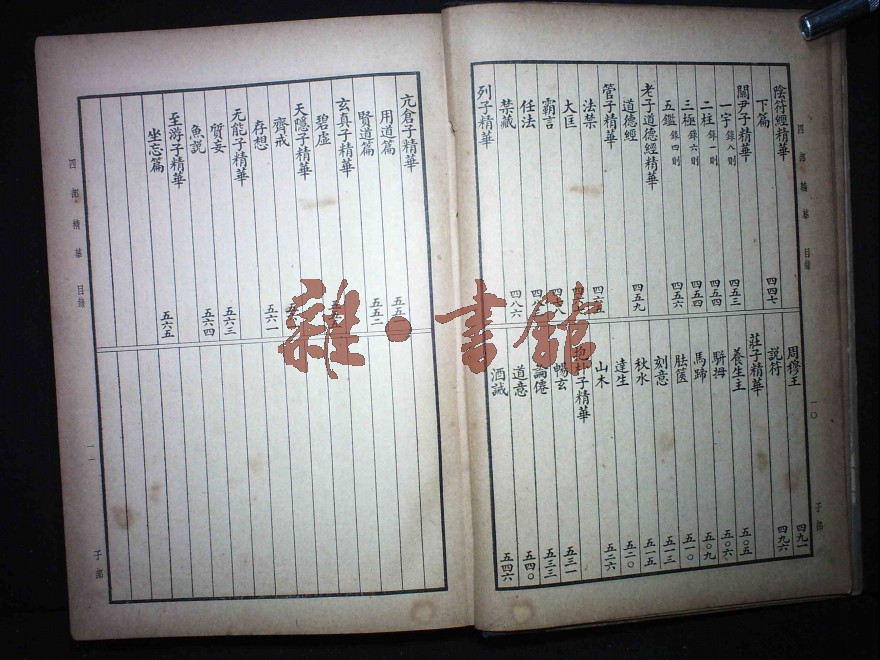 四部精華 目錄
一〇
子部
陰符經精華
下篇 四四七
關尹子精華
一宇 錄八則 四五三
二柱 錄一則 四五四
三極 錄六則 四五四
五鑑 錄四則 四五六
老子道德經精華
道德經 四五九
管子精華
法禁
大匡
霸言
任法
禁藏 四八六
列子精華
周穆王 四九一
說符 四九六
莊子精華
養生主 五〇五
駢拇 五〇六
馬蹄 五〇九
胠篋 五一〇
刻意 五一三
秋水 五一五
達生 五二〇
山木 五二六
抱朴子精華
暢玄 五三一
論僊 五三三
道意 五四〇
酒誡 五四六
亢倉子精華
用道篇
賢道篇 五五二
玄真子精華
碧虛
天隱子精華
齋戒
存想 五六一
元龍子精華
質妄 五六三
魚說 五六四
至游子精華
坐忘篇 五六五
四部精華 目錄
一一
子部
雜·書館